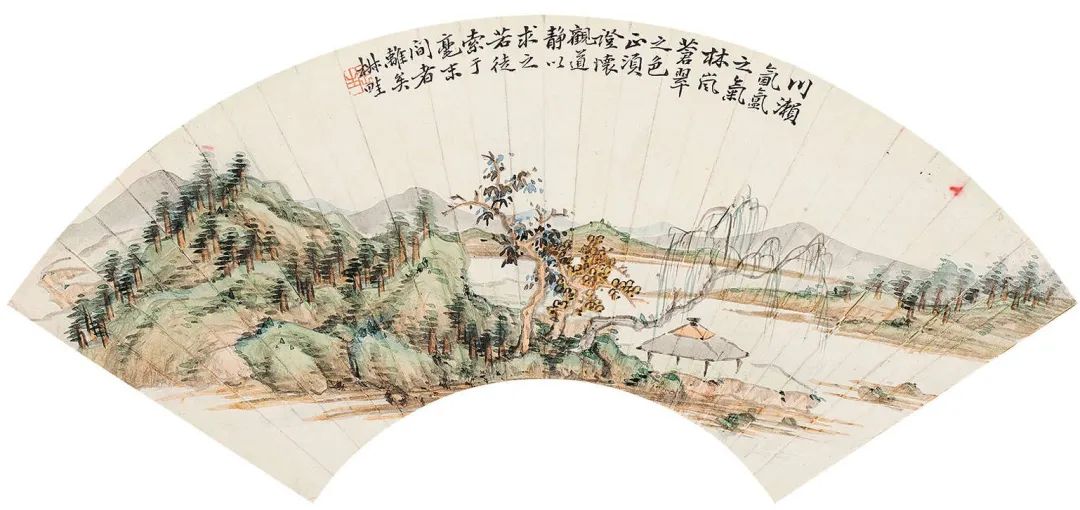 川瀨
氤氳
之氣
林嵐
蒼翠
之色
正須
澄懷
觀道
静以
求之
若徒
索于
毫末
間者
離矣
畦